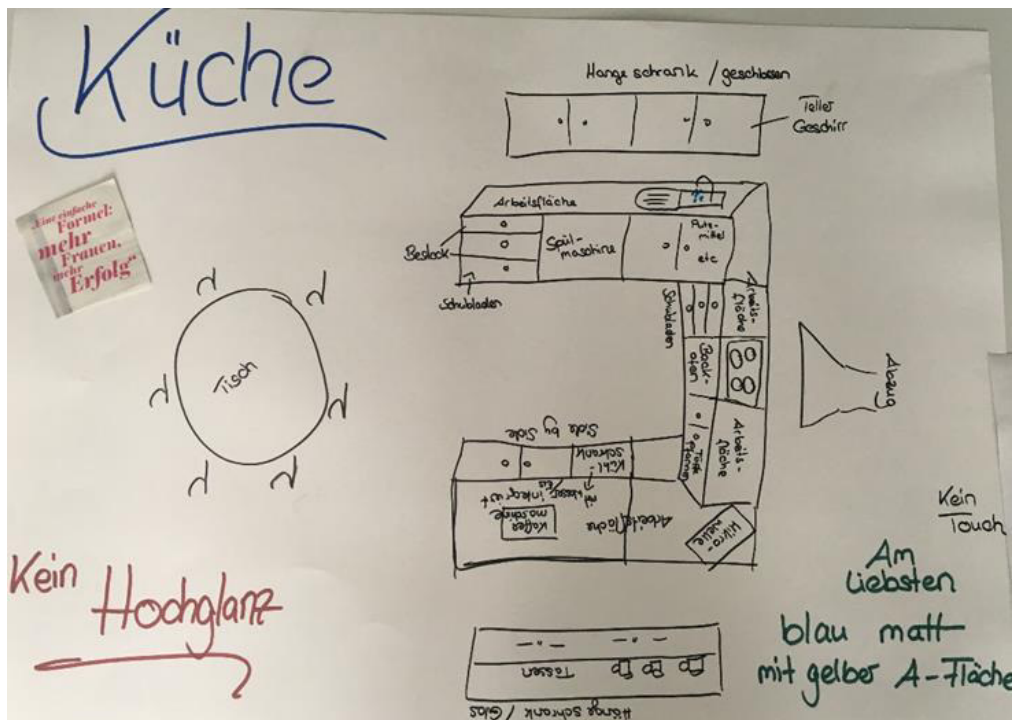 Küche
Hänge schrank / geschlossen
Teller
Geschirr
„Eine einfache
Formel:
mehr
Frauen,
mehr
Erfolg"
Arbeitsfläche
Besteck
Spül-
maschine
Putz-
mittel
etc
Schubladen
Schubladen
Arbeits-
fläche
Back-
ofen
Abzug
Tisch
Arbeits-
fläche
Töpfe
Pfannen
Side by Side
Kühl-
schrank
mit Wasser/Eis
integriert
Kaffee
maschine
Arbeitsfläche
Mikro-
welle
Kein
Touch
Kein
Hochglanz
Am
liebsten
blau matt
mit gelber A-Fläche
Tassen
Hänge schrank / Glas